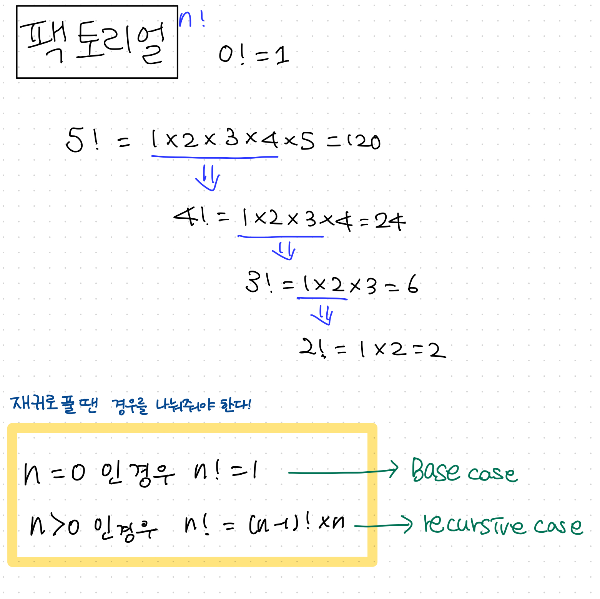 팩토리얼 n!
0! = 1
5! = 1×2×3×4×5 = 120
4! = 1×2×3×4 = 24
3! = 1×2×3 = 6
2! = 1×2 = 2
재귀로 풀 땐 경우를 나눠줘야 한다!
n = 0 인 경우 n! = 1 → Base case
n>0 인 경우 n! = (n-1)! ×n → recursive case